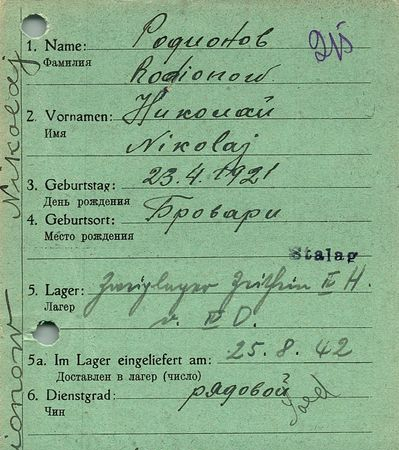 1. Name: Родионов
Фамилия
Rodionow
2. Vornamen: Николай
Имя
Nikolaj
3. Geburtstag: 23.4.1921
День рождения
4. Geburtsort: Бровари
Место рождения
Stalag
5. Lager: Zweiglager Zeithain IV H.
Лагер
v. IV D.
5a. Im Lager eingeliefert am: 25.8.42
Доставлен в лагер (число)
6. Dienstgrad: рядовой
Чин
Sold
Nikolaj
ionow